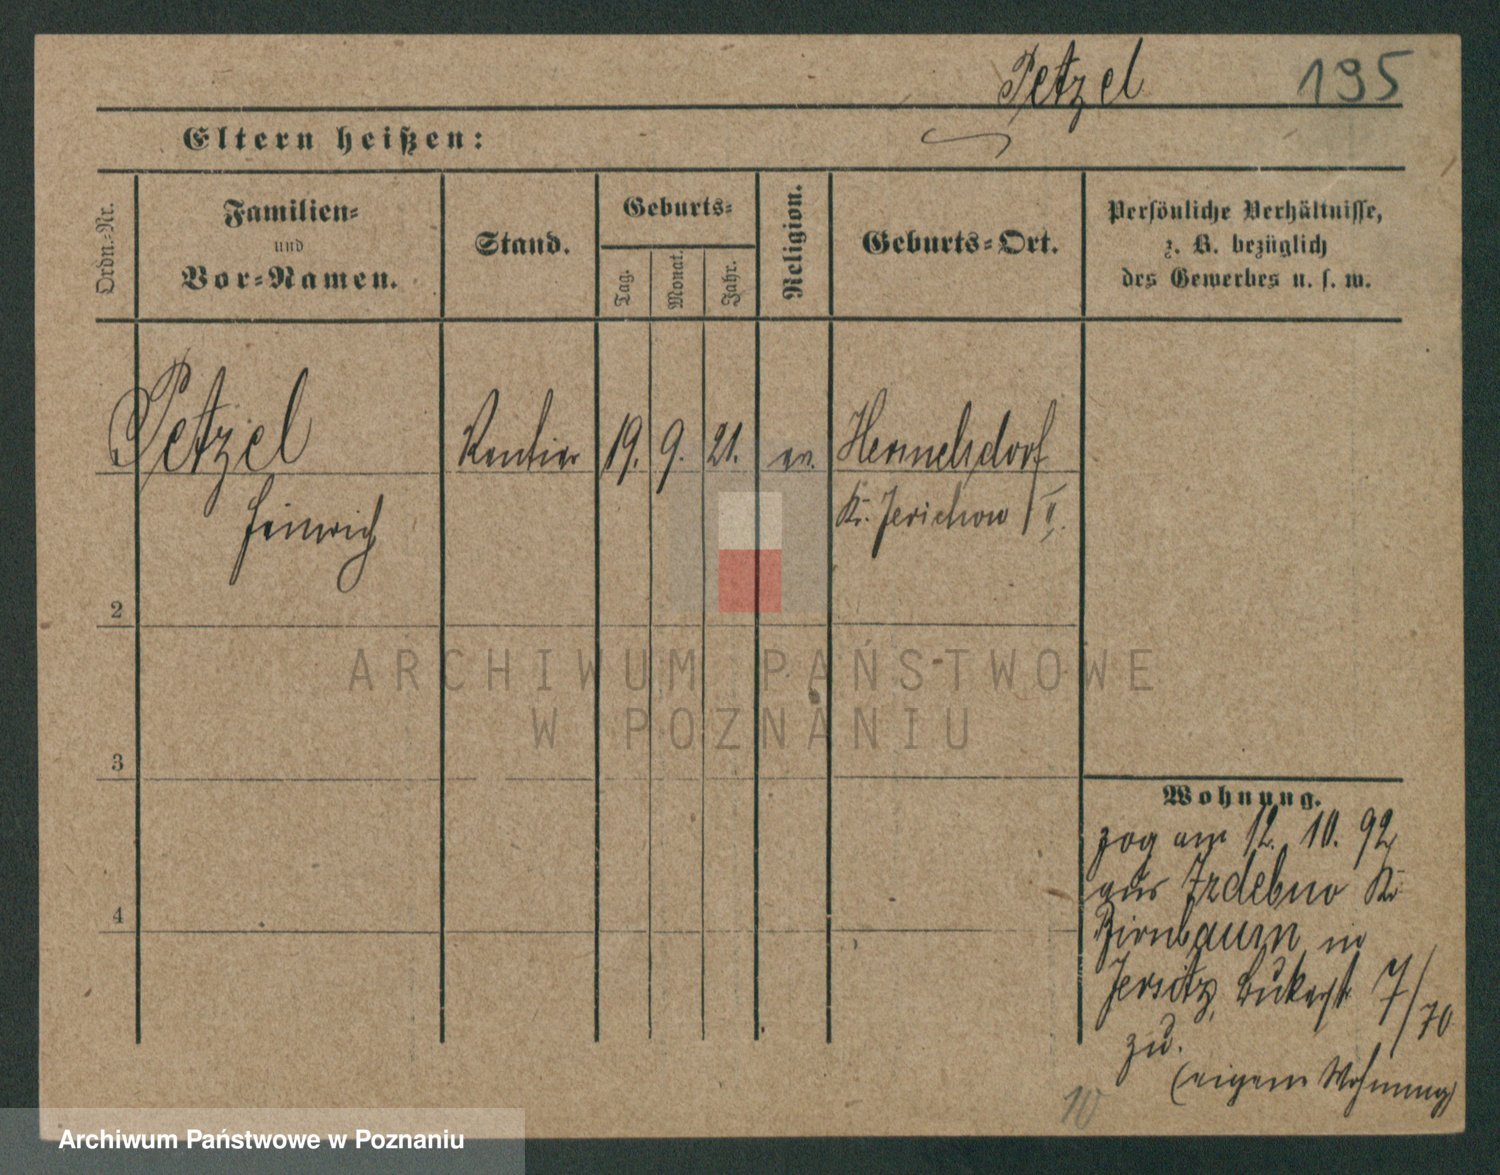 Petzel 195
Eltern heißen:
Ordn.-Nr.
Familien-
und
Vor-Namen.
Stand.
Geburts-
Tag.
Monat.
Jahr.
Religion.
Geburts-Ort.
Persönliche Verhältnisse,
z. B. bezüglich
des Gewerbes u. s. w.
1 Petzel Rentier 19. 9. 21. ev. Hermelsdorf
Heinrich Kr. Jerichow II.
2
3
4
Wohnung.
zog am 12. 10. 92
aus Zrdebno Kr
Birnbaum in
Jersitz, Bukerstr 7/70
zu.
(eigene Wohnung)
10
ARCHIWUM PAŃSTWOWE
W POZNANIU
Archiwum Państwowe w Poznaniu